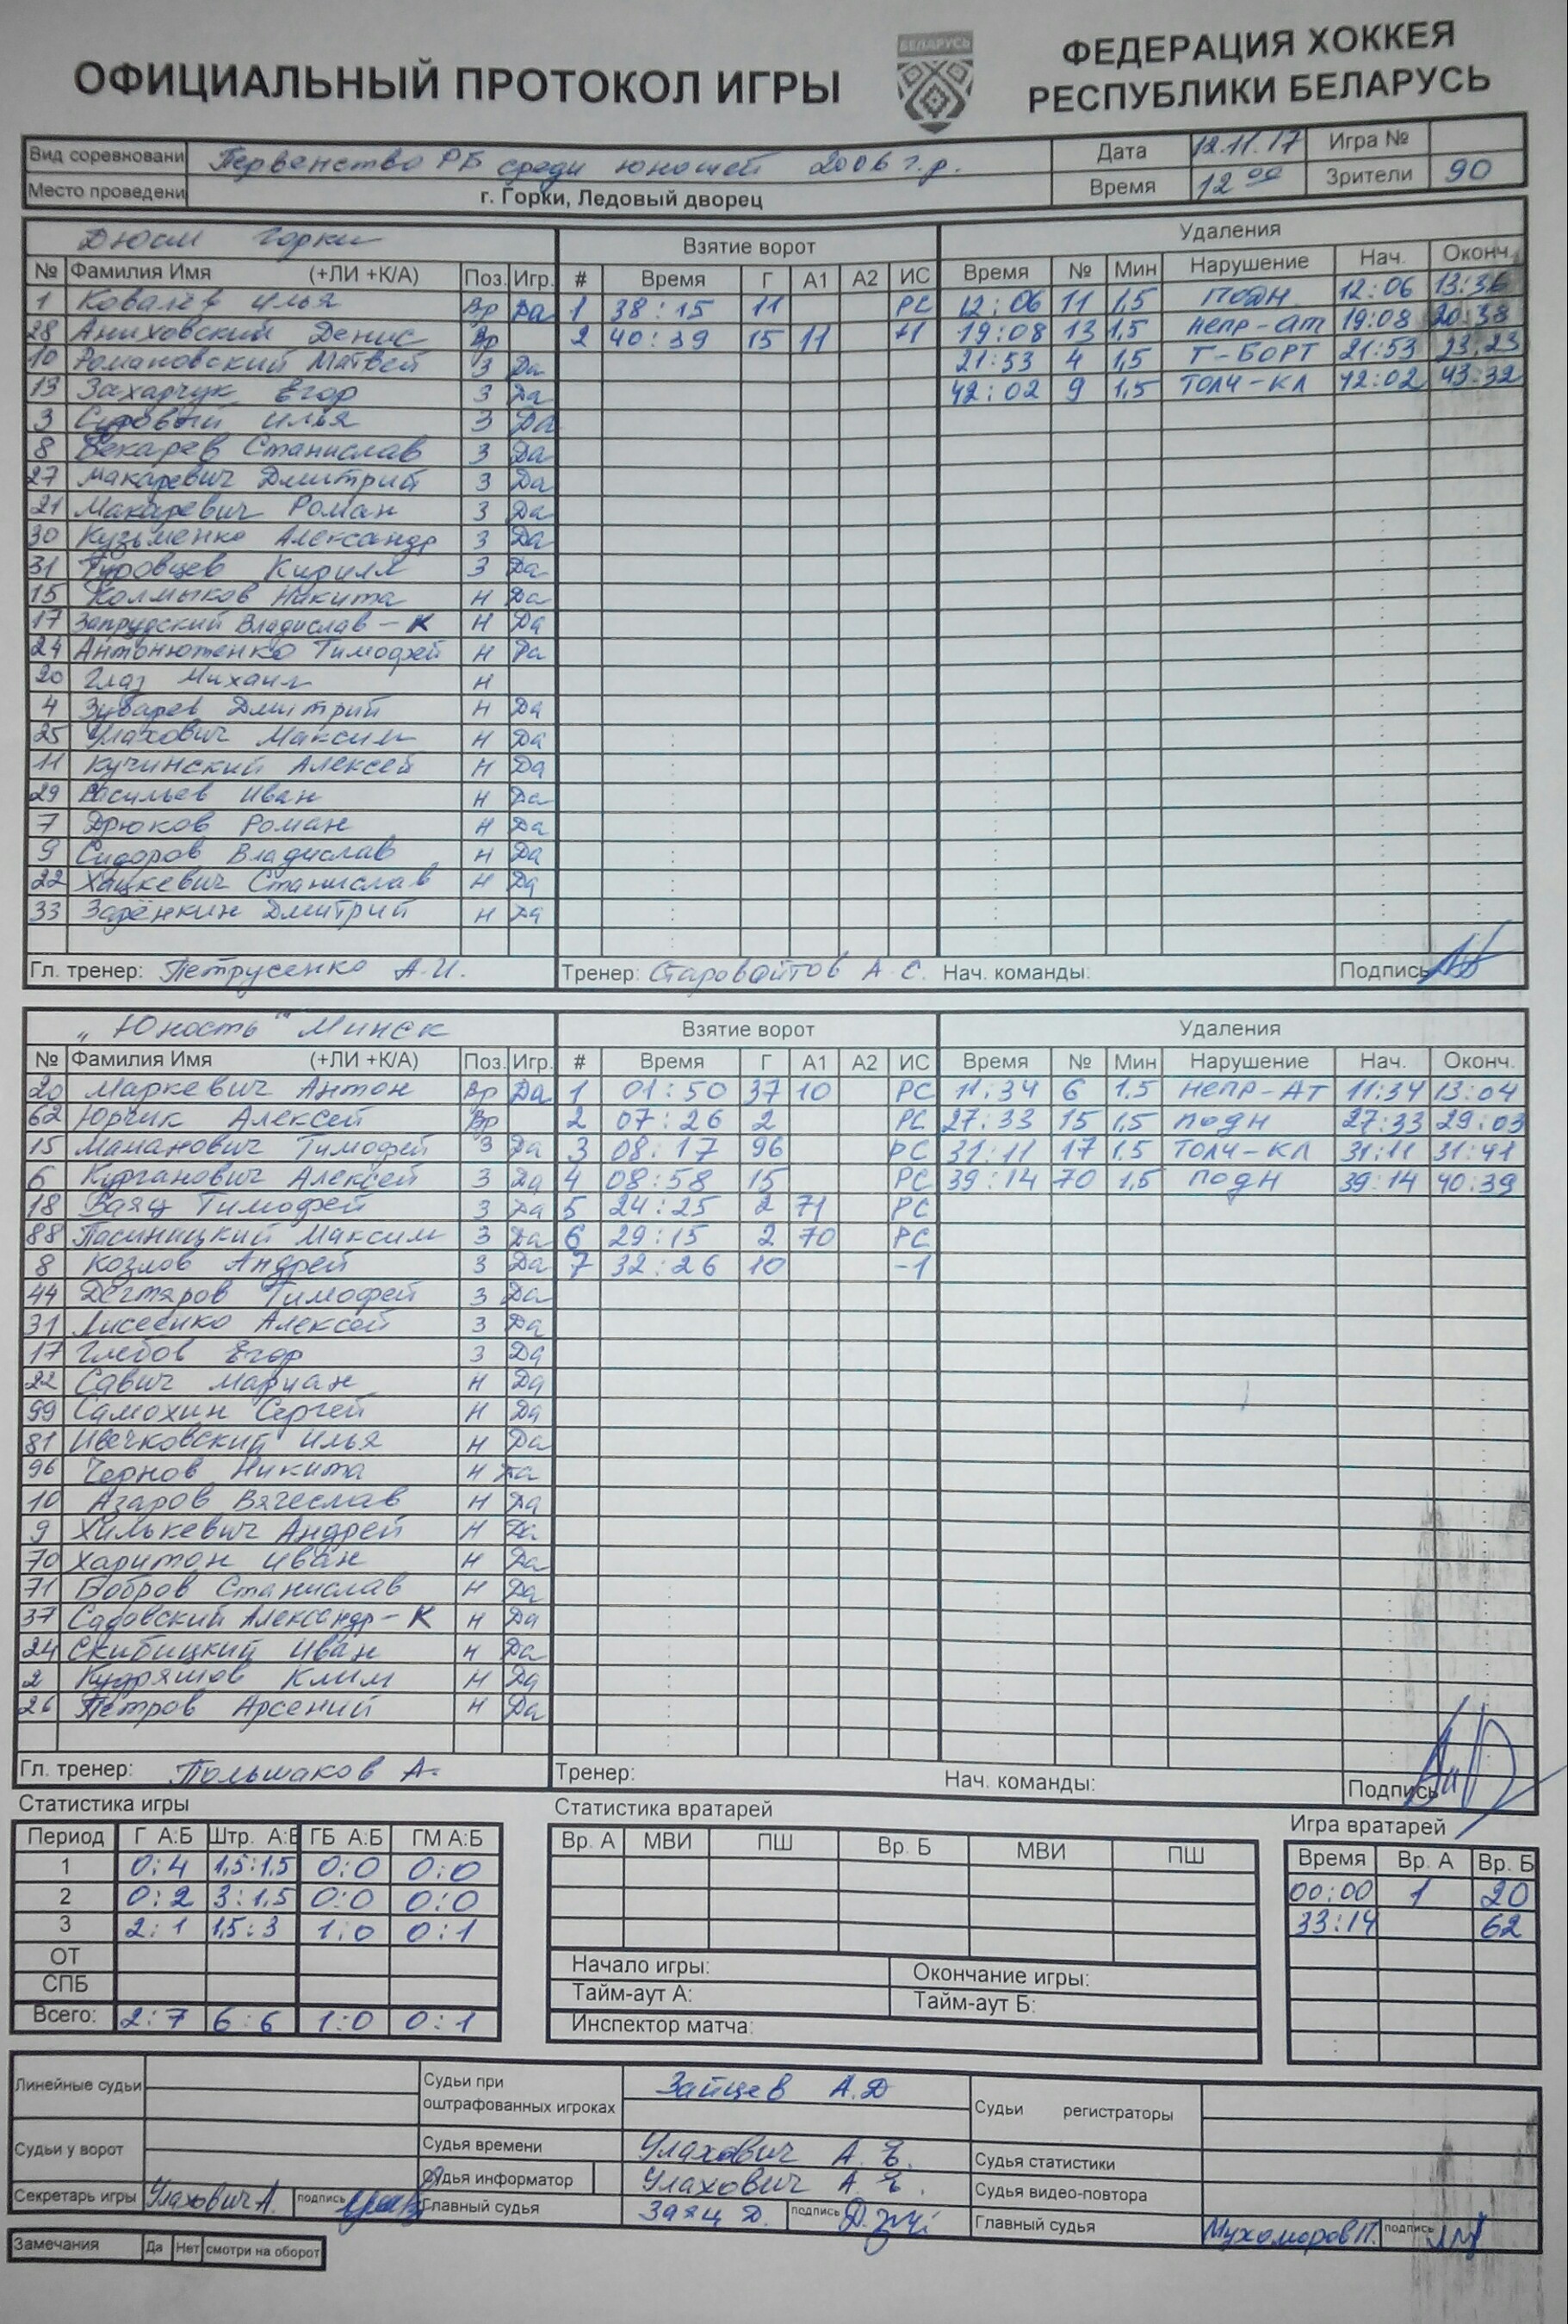 БЕЛАРУСЬ
ОФИЦИАЛЬНЫЙ ПРОТОКОЛ ИГРЫ
ФЕДЕРАЦИЯ ХОККЕЯ
РЕСПУБЛИКИ БЕЛАРУСЬ
Вид соревновани Первенство РБ среди юношей 2006 г.р. Дата 12.11.17 Игра №
Место проведени г. Горки, Ледовый дворец Время 12 00 Зрители 90
ДЮСШ Горки Взятие ворот Удаления
№ Фамилия Имя (+ЛИ +К/А) Поз. Игр. # Время Г А1 А2 ИС Время № Мин Нарушение Нач. Оконч.
1 Ковалёв Илья Вр Да 1 38:15 11 РС 12:06 11 1,5 ПОДН 12:06 13:36
28 Аниховский Денис Вр 2 40:39 15 11 +1 19:08 13 1,5 НЕПР-АТ 19:08 20:38
10 Романовский Матвей З Да 21:53 4 1,5 Т-БОРТ 21:53 23:23
13 Захарчук Егор З Да 42:02 9 1,5 ТОЛЧ-КЛ 42:02 43:32
3 Суровый Илья З Да
8 Бекарев Станислав З Да
27 Макаревич Дмитрий З Да
21 Макаревич Роман З Да
30 Кузьменко Александр З Да
31 Туровцев Кирилл З Да
15 Колмыков Никита Н Да
17 Запрудский Владислав - К Н Да
24 Антонютенко Тимофей Н Да
20 Глаз Михаил Н
4 Зубарев Дмитрий Н Да
25 Улахович Максим Н Да
11 Кучинский Алексей Н Да
29 Васильев Иван Н Да
7 Дрюков Роман Н Да
9 Сидоров Владислав Н Да
22 Хацкевич Станислав Н Да
33 Задёнкин Дмитрий Н Да
Гл. тренер: Петрусенко А.И. Тренер: Старовойтов А.С. Нач. команды: Подпись
"Юность" Минск Взятие ворот Удаления
№ Фамилия Имя (+ЛИ +К/А) Поз. Игр. # Время Г А1 А2 ИС Время № Мин Нарушение Нач. Оконч.
20 Маркевич Антон Вр Да 1 01:50 37 10 РС 11:34 6 1,5 НЕПР-АТ 11:34 13:04
62 Юрчик Алексей Вр 2 07:26 2 РС 27:33 15 1,5 ПОДН 27:33 29:03
15 Маманович Тимофей З Да 3 08:17 96 РС 31:11 17 1.5 ТОЛЧ-КЛ 31:11 31:41
6 Курганович Алексей З Да 4 08:58 15 РС 39:14 70 1,5 ПОДН 39:14 40:39
18 Ваяц Тимофей З Да 5 24:25 2 71 РС
88 Пасиницкий Максим З Да 6 29:15 2 70 РС
8 Козлов Андрей З Да 7 32:26 10 -1
44 Дегтяров Тимофей З Да
31 Лисеенко Алексей З Да
17 Глебов Егор З Да
22 Савич Мариан Н Да
99 Самохин Сергей Н Да
81 Ивечковский Илья Н Да
96 Чернов Никита Н Да
10 Азаров Вячеслав Н Да
9 Хилькевич Андрей Н Да
70 Харитон Иван Н Да
71 Бобров Станислав Н Да
37 Садовский Александр - К Н Да
24 Скибицкий Иван Н Да
2 Кудряшов Клим Н Да
26 Петров Арсений Н Да
Гл. тренер: Польшаков А. Тренер: Нач. команды: Подпись
Статистика игры Статистика вратарей Игра вратарей
Период Г А:Б Штр. А:Б ГБ А:Б ГМ А:Б Вр. А МВИ ПШ Вр. Б МВИ ПШ Время Вр. А Вр. Б
1 0:4 1,5:1,5 0:0 0:0 00:00 1 20
2 0:2 3:1,5 0:0 0:0 33:14 62
3 2:1 1,5:3 1:0 0:1
ОТ Начало игры: Окончание игры:
СПБ Тайм-аут А: Тайм-аут Б:
Всего: 2:7 6:6 1:0 0:1 Инспектор матча:
Линейные судьи Судьи при оштрафованных игроках Зайцев А.Д Судьи регистраторы
Судьи у ворот Судья времени Улахович А. Е. Судья статистики
Судья информатор Улахович А. Е. Судья видео-повтора
Секретарь игры Улахович А. подпись Главный судья Заяц Д. подпись Главный судья Мухоморов П. подпись
Замечания Да Нет смотри на оборот